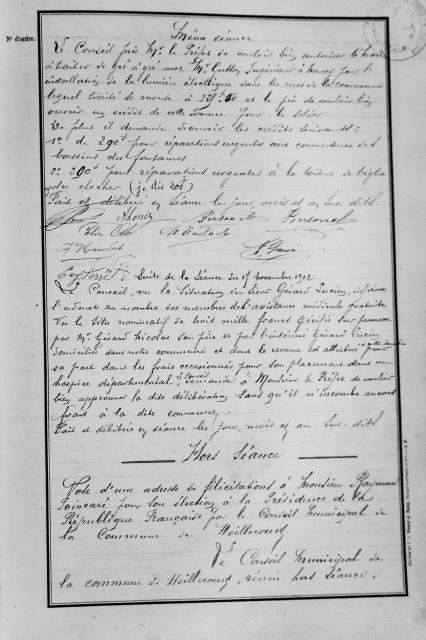 N° d'ordre.
Même séance
Le Conseil prie Mr. le Préfet de vouloir bien autoriser le maire
à traiter de gré à gré avec Mr. Gutton Ingénieur à Nancy pour l'
installation de la lumière électrique dans les rues de la commune
lequel traité se monte à et le prie de vouloir bien
ouvrir un crédit de cette somme pour le solder
De plus il demande d'ouvrir les crédits suivants :
1° de 290f pour réparations urgentes aux couvertures des
bassins des fontaines
2° 200f pour réparations urgentes à la toiture de l'église
du clocher (je dis 200f)
Fait et délibéré en séance les jour, mois et an sus. dits
Suite de la Séance du 15 novembre 1912
Le Conseil, vu la situation du Sieur Gérard Lucien,
l'admet au nombre des membres de l'assistance médicale gratuite
Vu le titre nominatif de trois mille francs
par Mr. Gérard Nicolas son père et par l'intérimé Gérard Lucien
domiciliés dans notre commune et dont le revenu est attribué pour
sa part dans les frais occasionnés pour son placement dans un
hospice départemental, le Conseil demande à Monsieur le Préfet de vouloir
bien approuver la dite délibération sans qu'il n'incombe aucuns
frais à la dite commune.
Fait et délibéré en séance les jour, mois et an sus. dits
Hors Séance
Vote d'une adresse de félicitations à Monsieur Raymond
Poincaré pour son élection à la Présidence de la
République Française par le Conseil Municipal de
la Commune de Heillecourt
Le Conseil Municipal de
la commune de Heillecourt, réuni hors Séance,